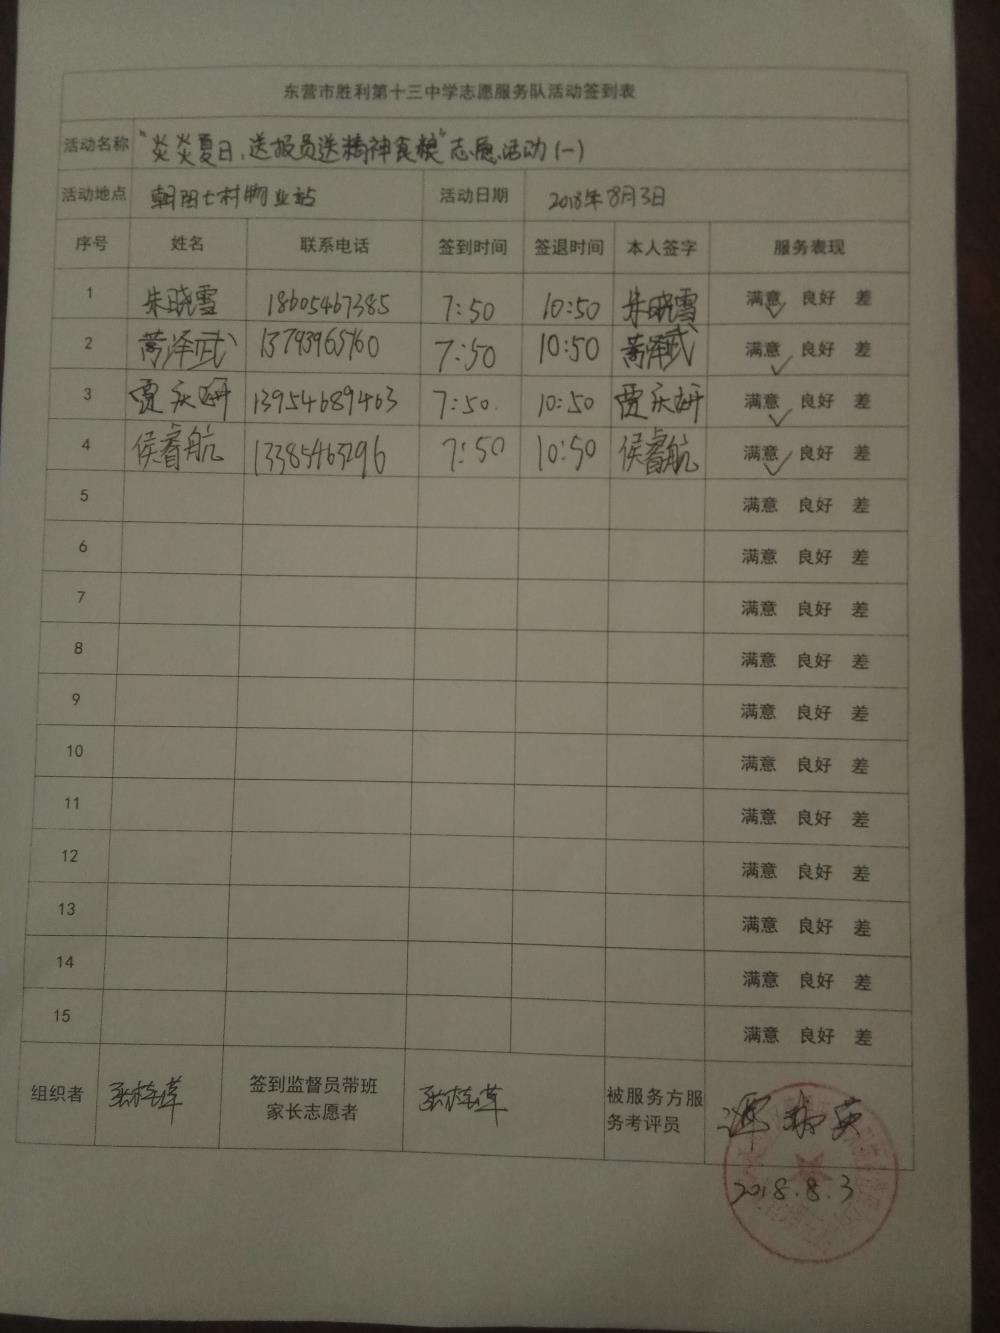 东营市胜利第十三中学志愿服务队活动签到表
活动名称 "炎炎夏日,送报员送精神食粮"志愿活动(一)
活动地点 朝阳七村物业站 活动日期 2018年8月3日
序号 姓名 联系电话 签到时间 签退时间 本人签字 服务表现
1 朱晓雪 18605467385 7:50 10:50 朱晓雪 满意 良好 差
2 泽武 13793965760 7:50 10:50 泽武 满意 良好 差
3 贾庆妍 13954689463 7:50 10:50 贾庆妍 满意 良好 差
4 侯睿航 13385463296 7:50 10:50 侯睿航 满意 良好 差
5 满意 良好 差
6 满意 良好 差
7 满意 良好 差
8 满意 良好 差
9 满意 良好 差
10 满意 良好 差
11 满意 良好 差
12 满意 良好 差
13 满意 良好 差
14 满意 良好 差
15 满意 良好 差
组织者 签到监督员带班 被服务方服
家长志愿者 务考评员
2018.8.3